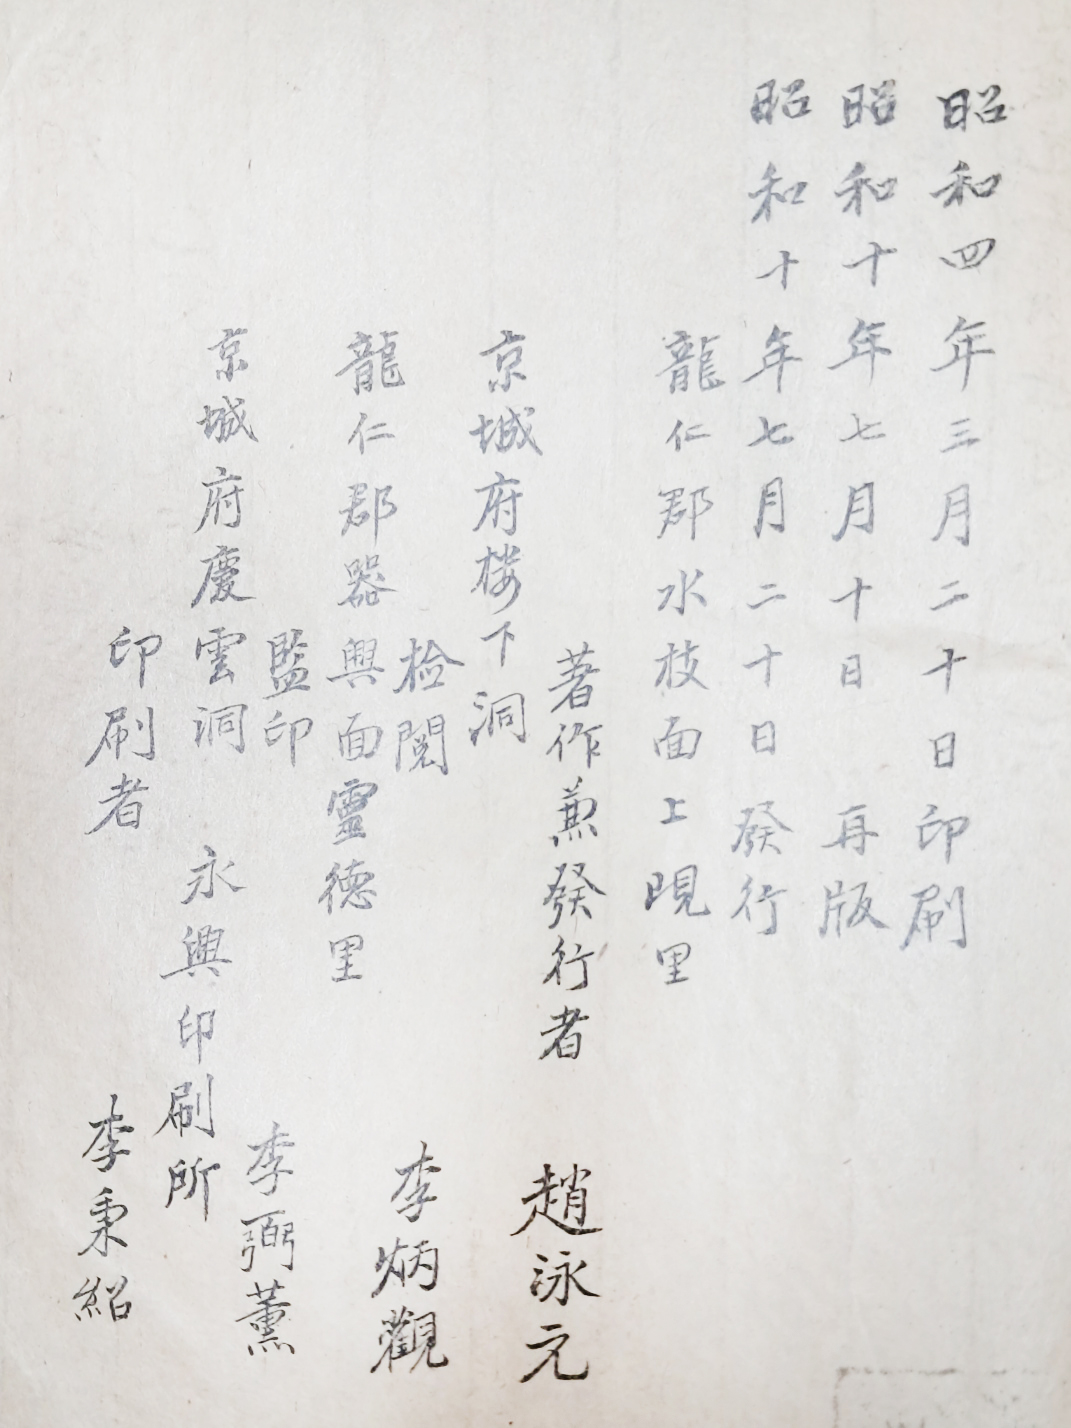 昭和四年三月二十日印刷
昭和十年七月十日再版
昭和十年七月二十日發行
龍仁郡水枝面上睍里
著作兼發行者 趙泳元
京城府楼下洞
检閱 李炳觀
龍仁郡器興面靈德里
監印 李弼薰
京城府慶雲洞 永興印刷所
印刷者 李秉紹